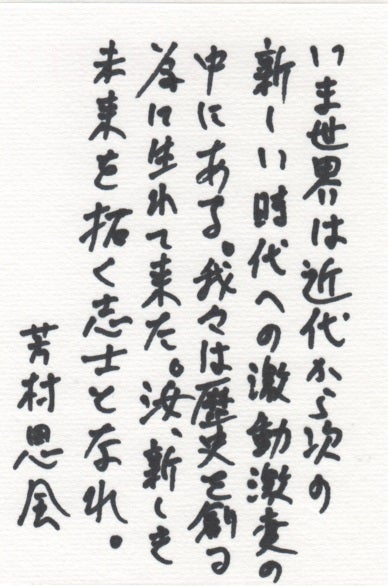 いま世界は近代から次の
新しい時代への激動激変の
中にある。我々は歴史を創る
為に生れて来た。汝、新しき
未来を拓く志士となれ。
芳村思風